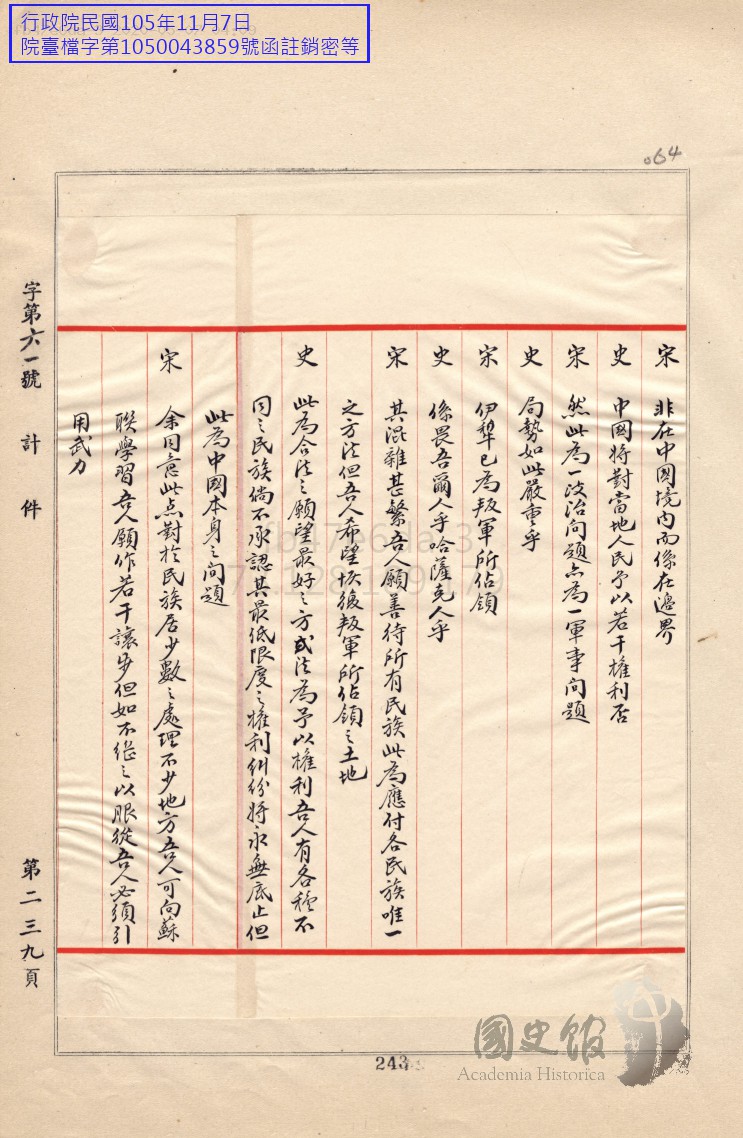 行政院民國105年11月7日
院臺檔字第1050043859號函註銷密等
064
宋 非在中國境內而係在邊界
史 中國將對當地人民予以若干權利否
宋 然此為一政治问題亦為一軍事问題
史 局勢如此嚴重乎
宋 伊犂已為叛軍所佔領
史 係畏吾爾人乎哈薩克人乎
宋 其混雜甚繁吾人願善待所有民族此為應付各民族唯一
之方法但吾人希望恢復叛軍所佔領之土地
史 此為合法之願望最好之方式法為予以權利吾人有各種不
同之民族倘不承認其最低限度之權利糾纷將永無底止但
此為中國本身之问題
宋 余同意此点對於民族居少數之處理不少地方吾人可向蘇
聯學習吾人願作若干讓步但如不繼之以服從吾人必須引
用武力
字第六一號 計 件
第二三九頁
243
國史館
Academia Historica